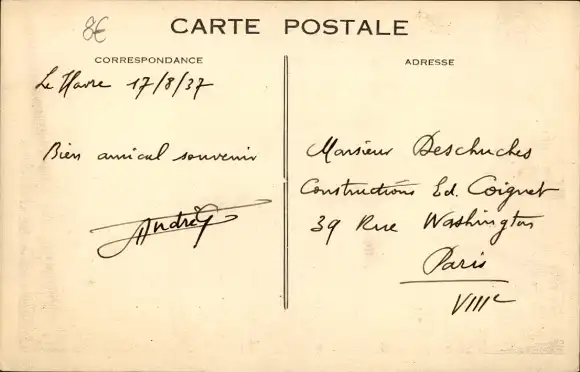 8€
CARTE POSTALE
CORRESPONDANCE
Le Havre 17/8/37
Bien amical souvenir
André
ADRESSE
Monsieur Deschuches
Constructions Ed. Coignet
39 Rue Washington
Paris
VIIIe